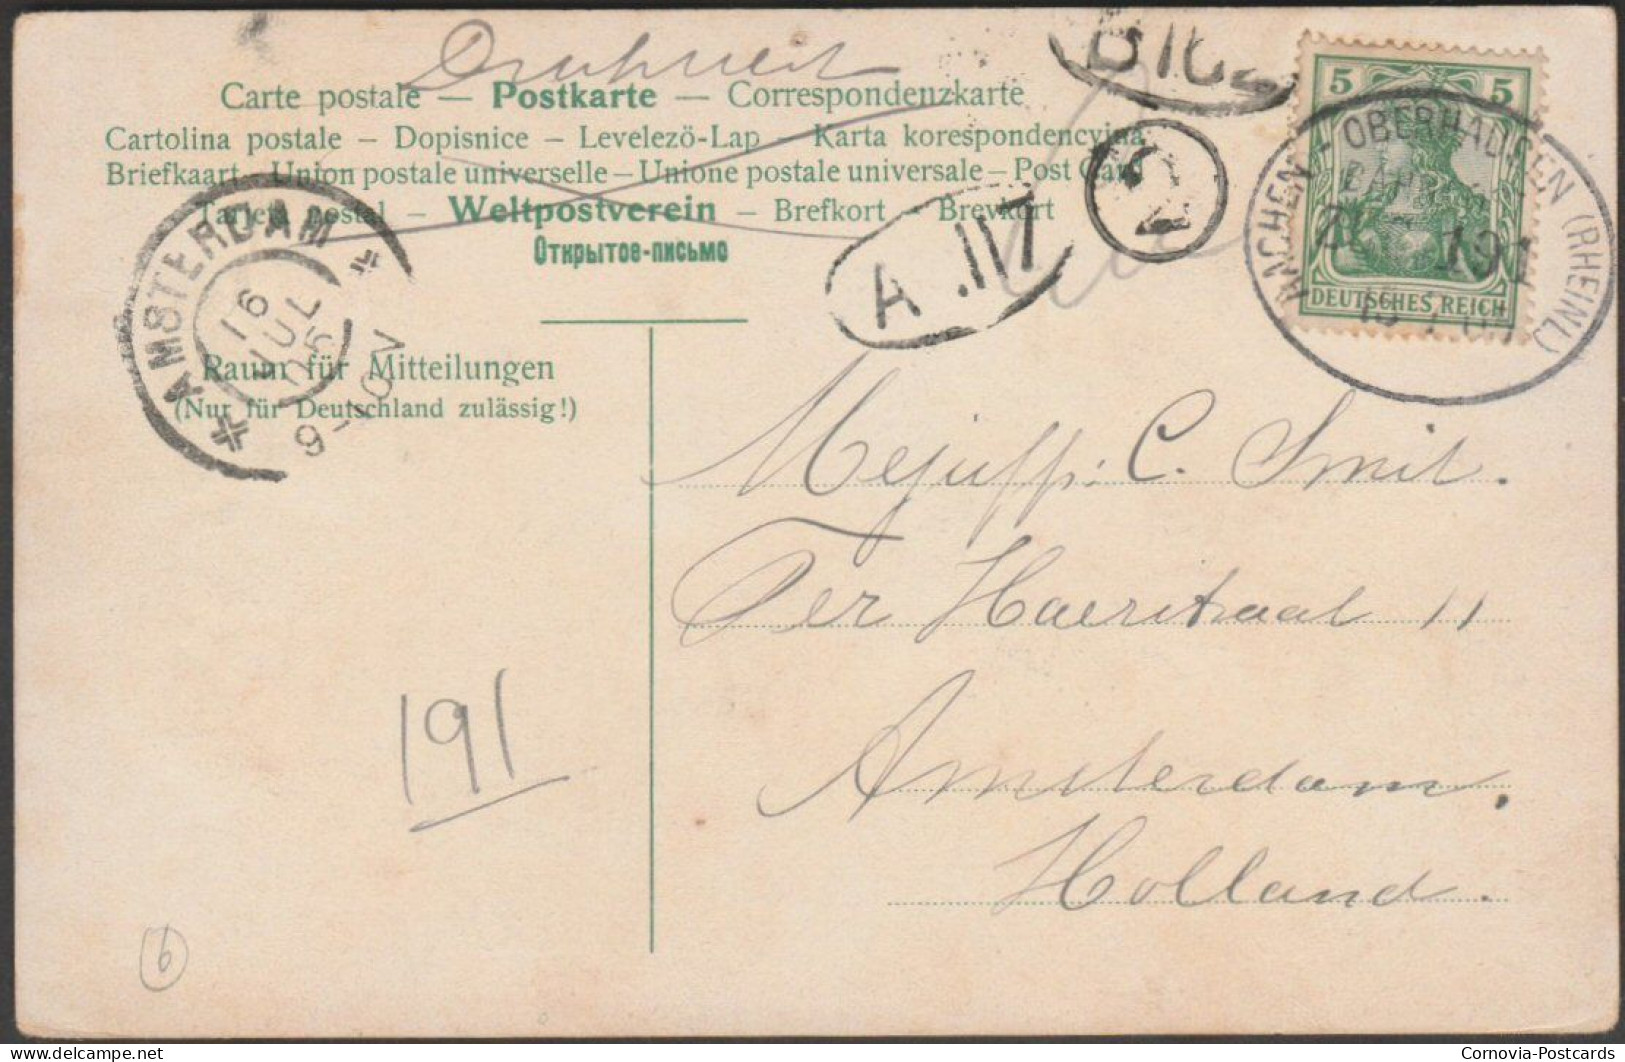 Carte postale — Postkarte — Correspondenzkarte
Cartolina postale – Dopisnice – Levelezö-Lap – Karta korespondencyjna
Briefkaart - Union postale universelle – Unione postale universale – Post Card
Tarjeta postal – Weltpostverein – Brefkort - Brevkort
Открытое-письмо
5 5
DEUTSCHES REICH
AACHEN - OBERHAUSEN (RHEINL)
A .III7
2
AMSTERDAM
16
JUL
05
9-10V
Raum für Mitteilungen
(Nur für Deutschland zulässig!)
Mejuffr: C. Smit.
Ter Haarstraat 11
Amsterdam.
Holland.
191
6
delcampe.net
Cornovia-Postcards